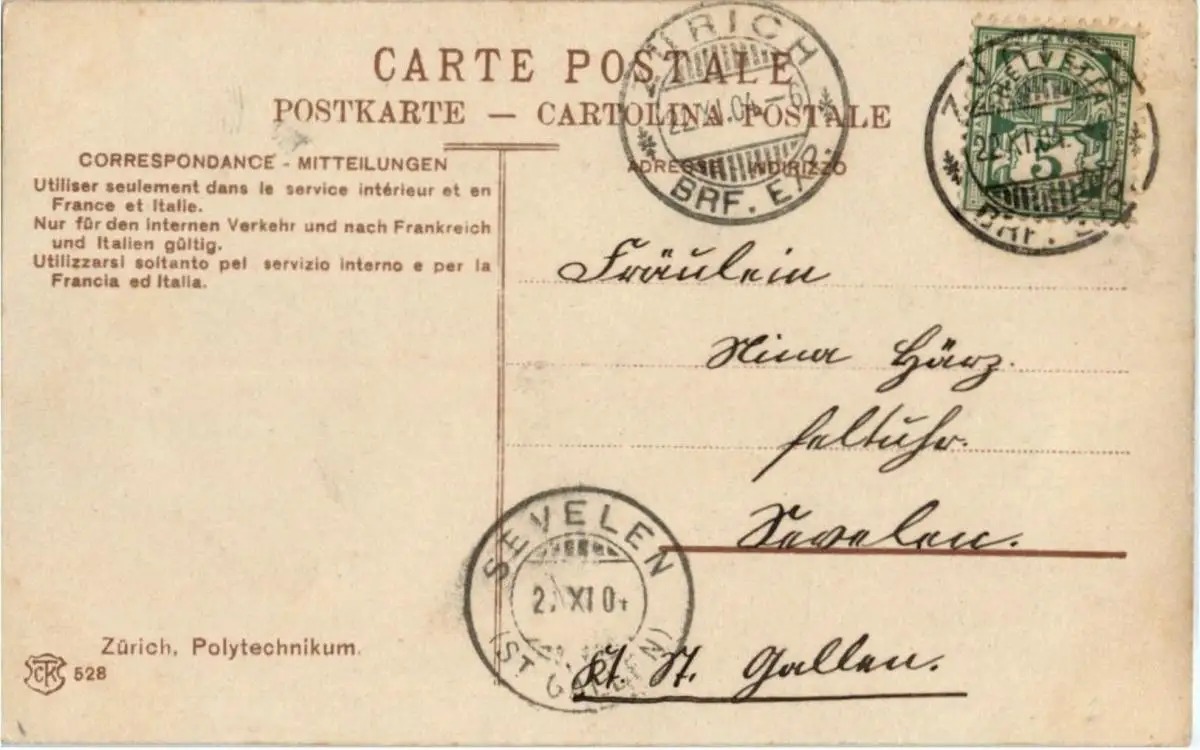 CARTE POSTALE
POSTKARTE — CARTOLINA POSTALE
CORRESPONDANCE - MITTEILUNGEN
Utiliser seulement dans le service intérieur et en
France et Italie.
Nur für den internen Verkehr und nach Frankreich
und Italien gültig.
Utilizzarsi soltanto pel servizio interno e per la
Francia ed Italia.
ADRESSE INDIRIZZO
ZÜRICH
22.XI.04.–6
BRF. EX
HELVETIA
5
22.XI.04.
BRF.
Fräulein
Nina Härz.
Sevelen.
Kt. St. Gallen.
SEVELEN
XI 04
(ST GALLEN)
Zürich, Polytechnikum.
CTK 528